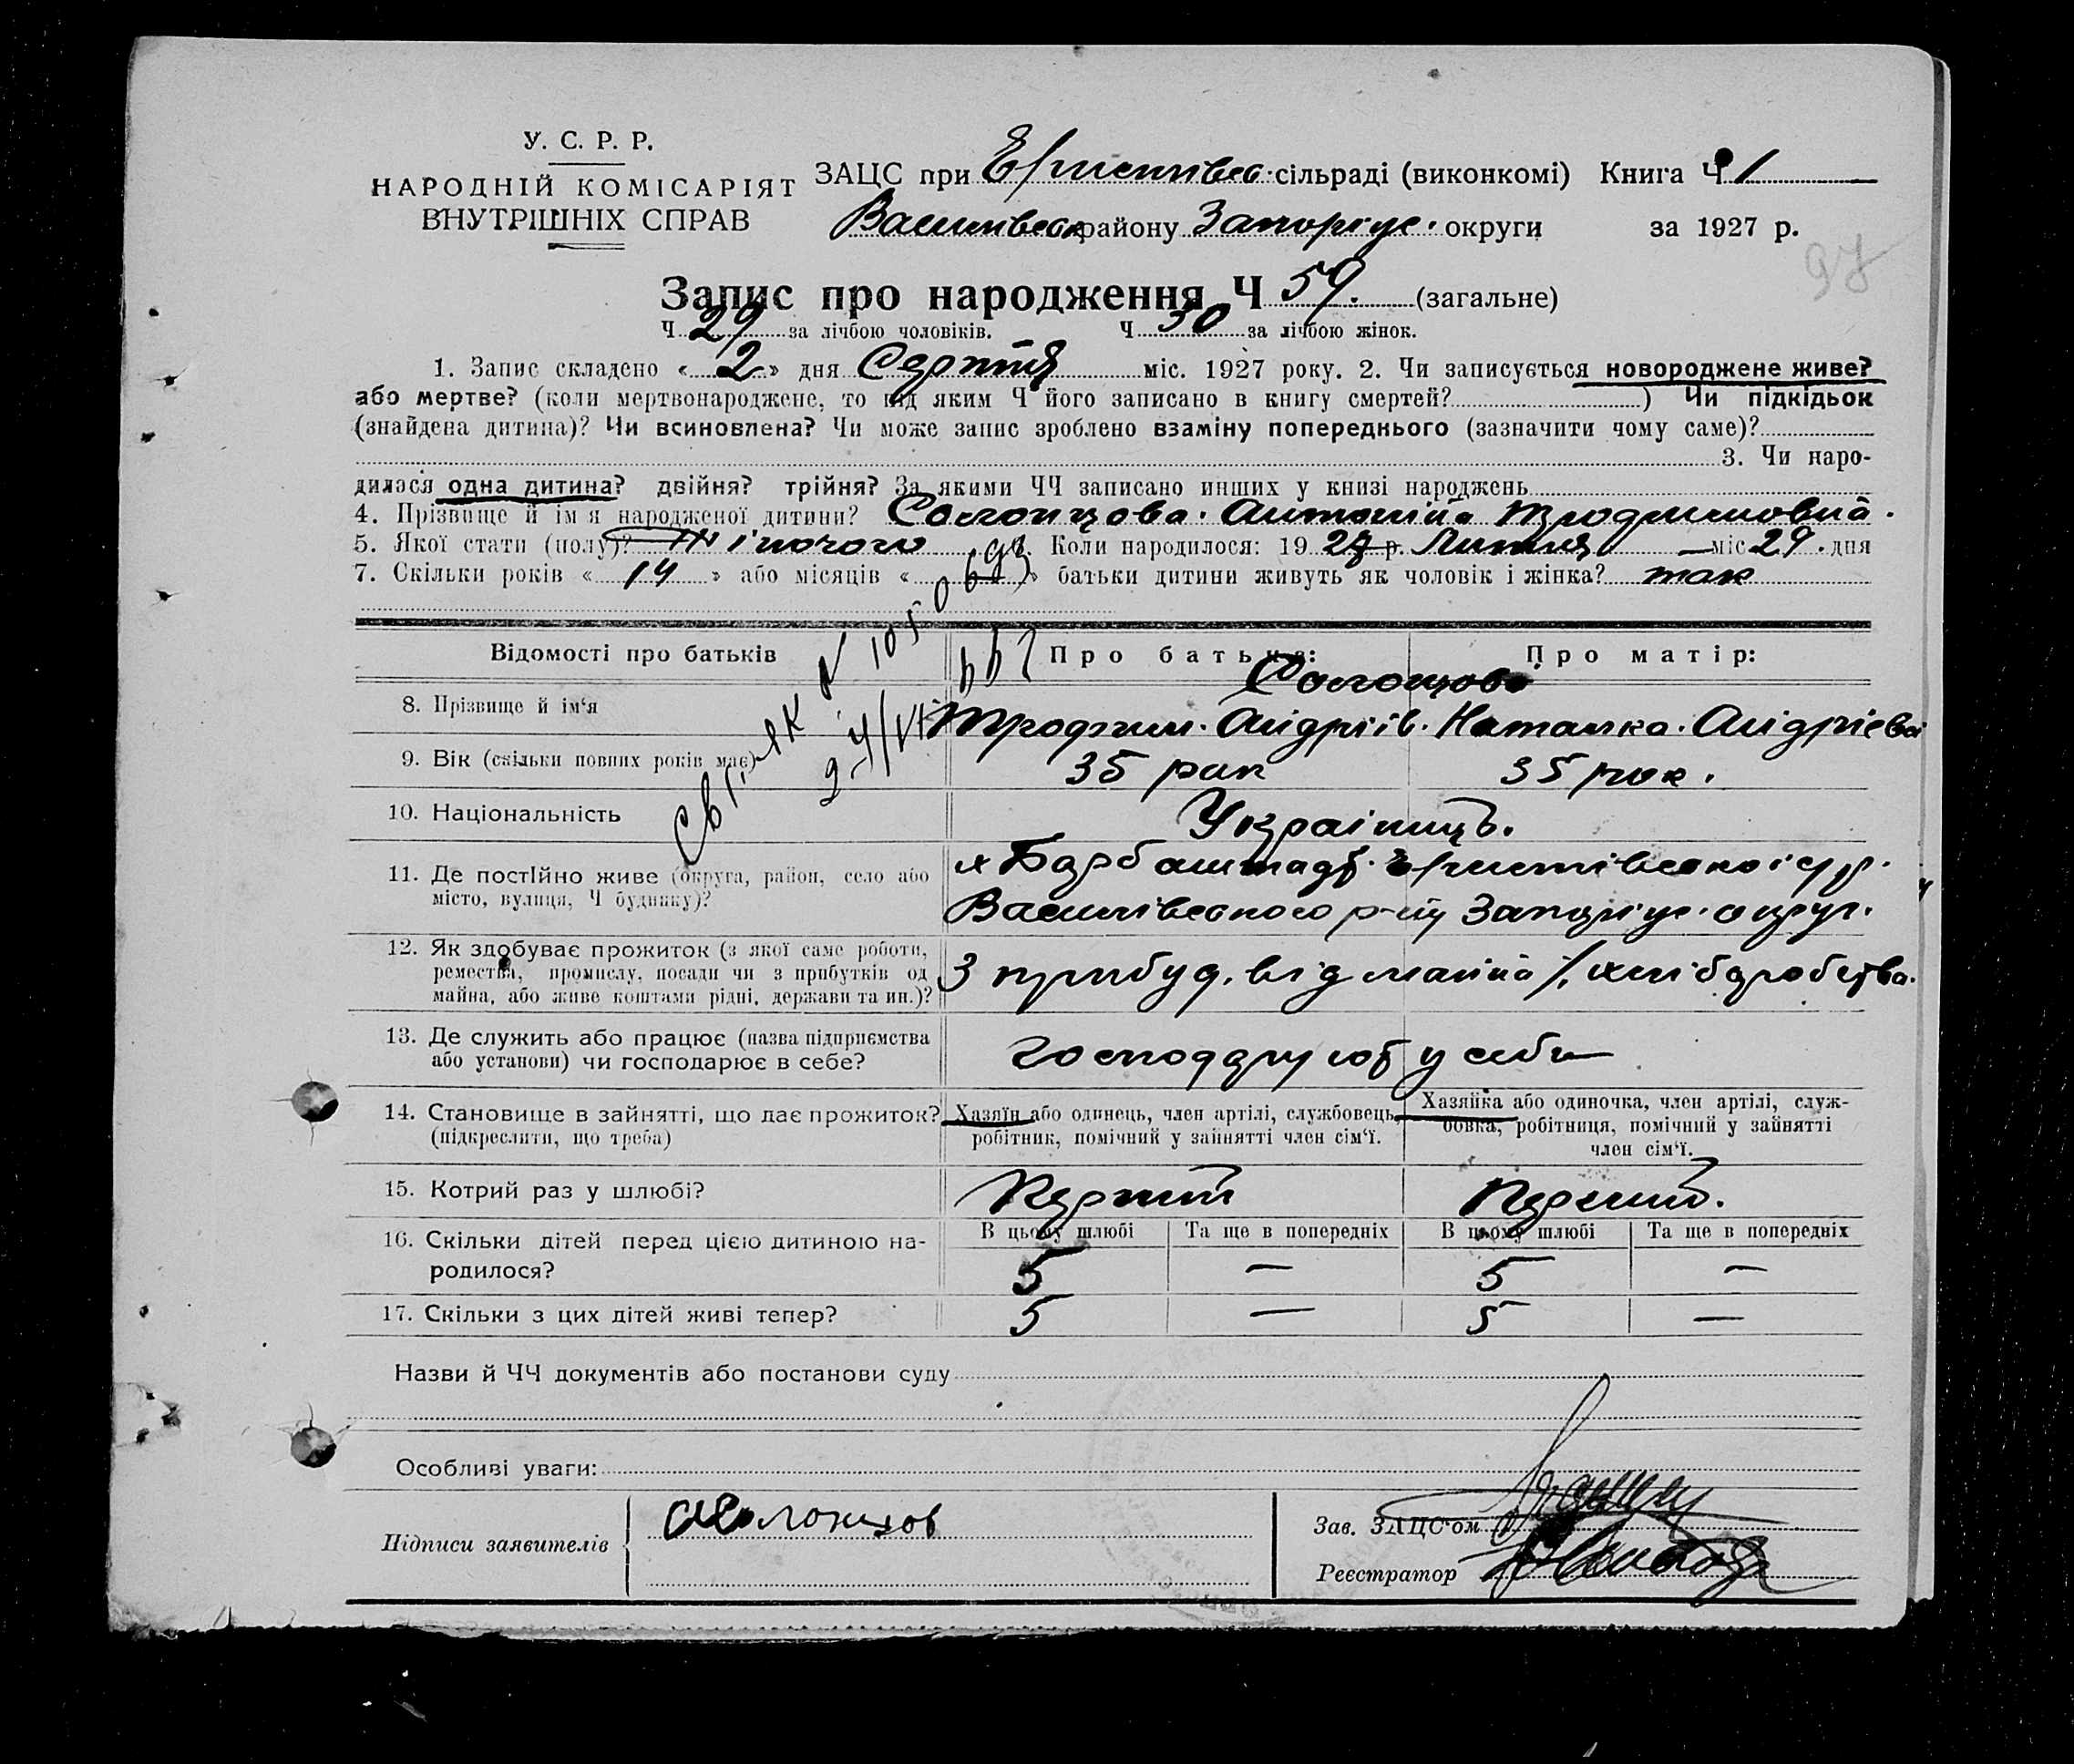 У. С. Р. Р.
НАРОДНІЙ КОМІСАРІЯТ
ВНУТРІШНІХ СПРАВ
ЗАЦС при сільраді (виконкомі) Книга Ч 1
району Запоріж. округи за 1927 р.
97
Запис про народження Ч 59. (загальне)
Ч 29 за лічбою чоловіків. Ч 30 за лічбою жінок.
1. Запис складено « 2 » дня Серпня міс. 1927 року. 2. Чи записується новороджене живе?
або мертве? (коли мертвонароджене, то під яким Ч його записано в книгу смертей? ) Чи підкідьок
(знайдена дитина)? Чи всиновлена? Чи може запис зроблено взаміну попереднього (зазначити чому саме)?
3. Чи наро-
дилася одна дитина? двійня? трійня? За якими ЧЧ записано инших у книзі народжень
4. Прізвище й ім'я народженої дитини? Солонцова. Антоніна Трофимовна.
5. Якої стати (полу)? Жіночого 6. Коли народилося: 19 27 р. Липня міс 29. дня
7. Скільки років « 14 » або місяців « » батьки дитини живуть як чоловік і жінка? так
Відомості про батьків
Про батька:
Про матір:
Солонцови
8. Прізвище й ім'я
Трофим. Андріів. Наталка. Андріева
9. Вік (скільки повних років має)
35 рок
35 рок.
10. Національність
Украінці.
11. Де постійно живе (округа, район, село або
місто, вулиця, Ч будинку)?
Василівского р-ну Запоріж. округ.
12. Як здобуває прожиток (з якої саме роботи,
ремества, промислу, посади чи з прибутків од
майна, або живе коштами рідні, держави та ин.)?
З прибуд. від майна /. хліборобства.
13. Де служить або працює (назва підприємства
або установи) чи господарює в себе?
Господарують у себе
14. Становище в зайнятті, що дає прожиток?
(підкреслити, що треба)
Хазяїн або одинець, член артілі, службовець,
робітник, помічний у зайнятті член сім'ї.
Хазяйка або одиночка, член артілі, служ-
бовка, робітниця, помічний у зайнятті
член сім'ї.
15. Котрий раз у шлюбі?
Перший
Перший.
16. Скільки дітей перед цією дитиною на-
родилося?
В цьому шлюбі Та ще в попередніх В цьому шлюбі Та ще в попередніх
5 — 5 —
17. Скільки з цих дітей живі тепер?
5 — 5 —
Назви й ЧЧ документів або постанови суду
Особливі уваги:
Підписи заявителів
Солонцов
Зав. ЗАЦС'ом
Реєстратор